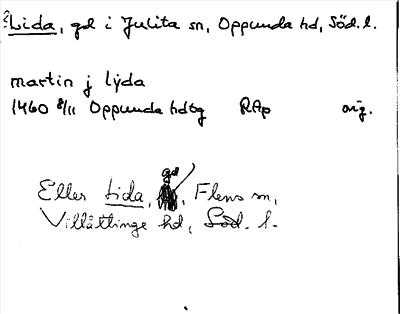 ? Lida, gd i Julita sn, Oppunda hd, Söd. l.
martin j lÿda
1460 8/11 Oppunda hdtg RAp orig.
Eller Lida, gd, Flens sn,
Villåttinge hd, Söd. l.